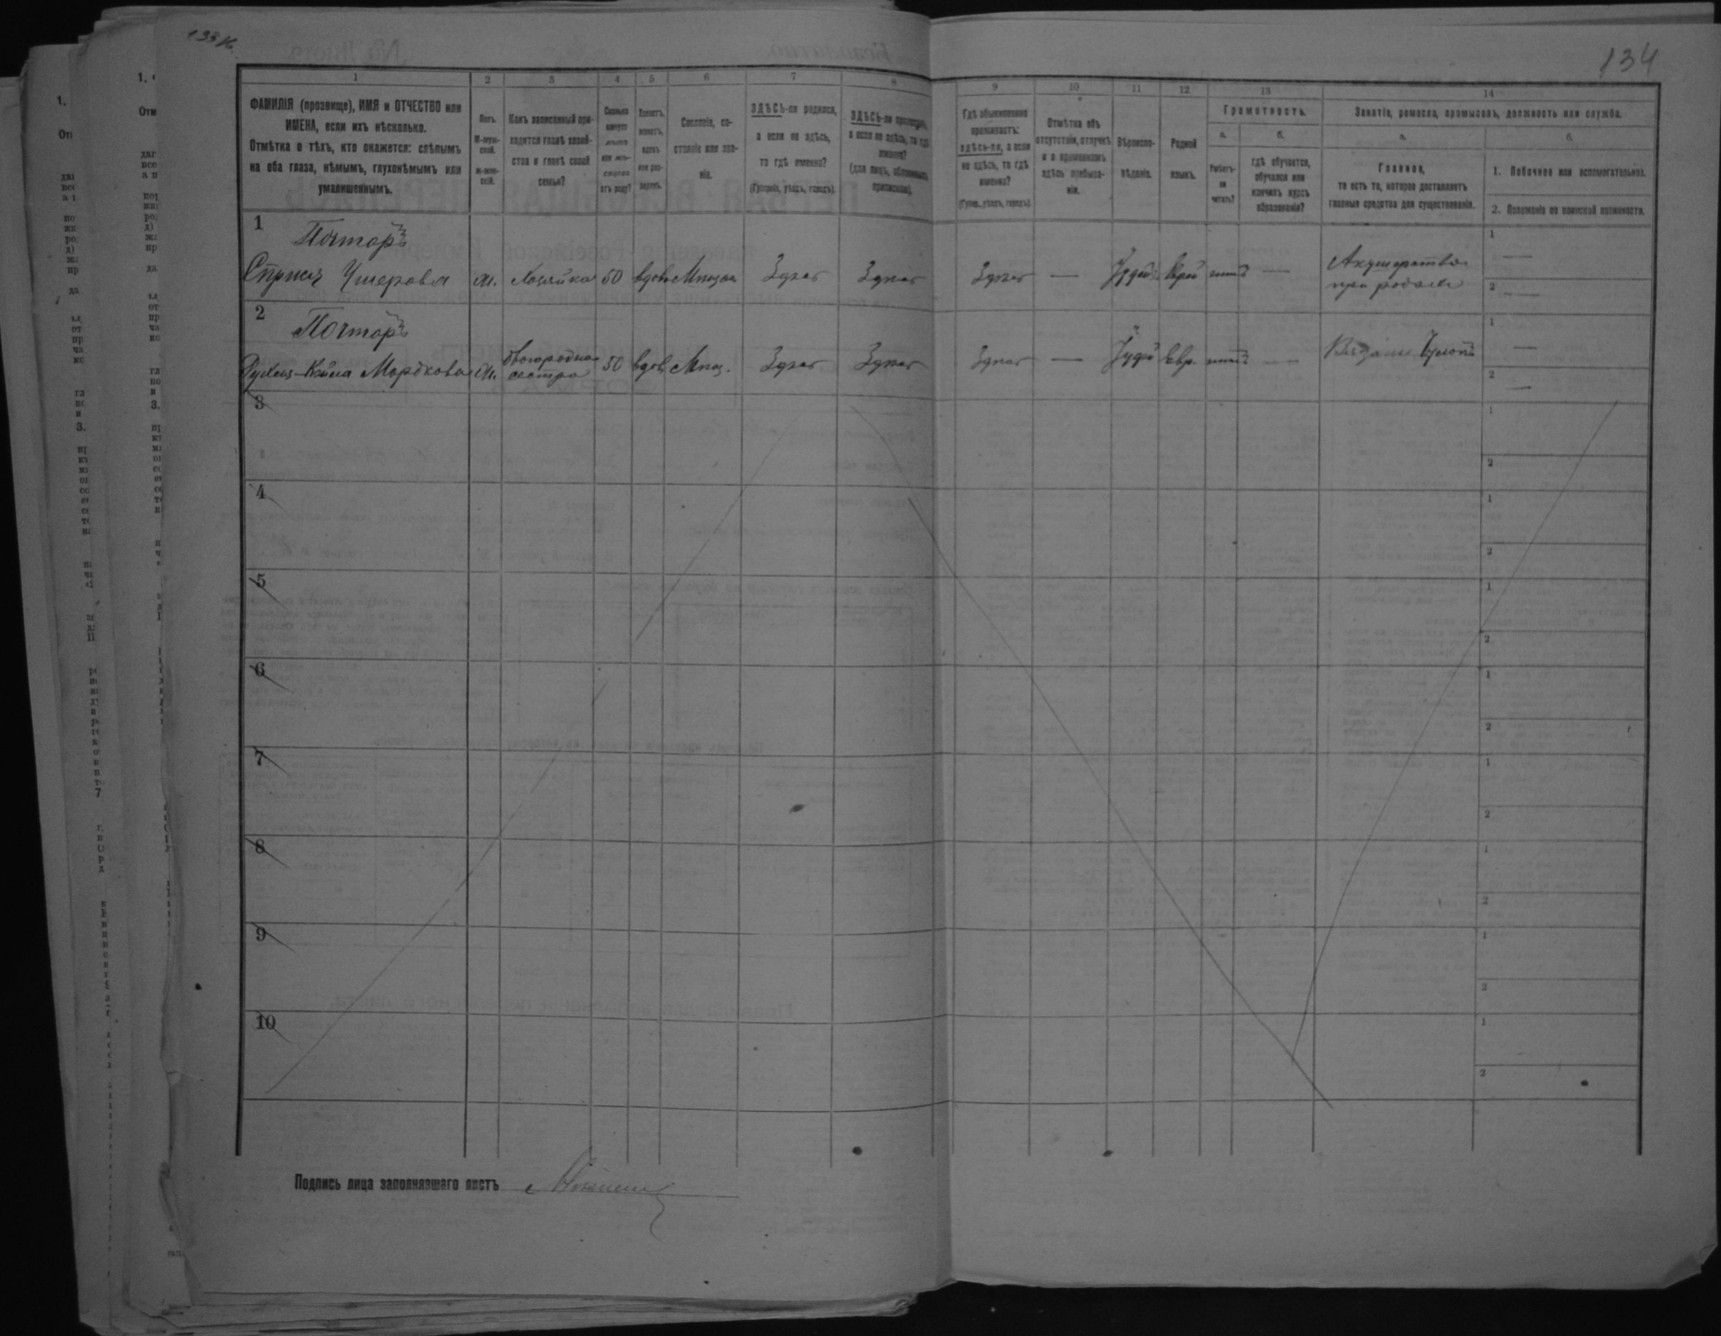 134
1 2 3 4 5 6 7 8 9 10 11 12 13 14
ФАМИЛІЯ (прозвище), ИМЯ и ОТЧЕСТВО или
ИМЕНА, если ихъ нѣсколько.
Отмѣтка о тѣхъ, кто окажется: слѣпымъ
на оба глаза, нѣмымъ, глухонѣмымъ или
умалишеннымъ.
Полъ.
М-муж-
ской.
Ж-жен-
скій.
Какъ записанный при-
ходится главѣ хозяй-
ства и главѣ своей
семьи?
Сколько
минуло
лѣтъ
или мѣ-
сяцевъ
отъ роду?
Холостъ,
женатъ,
вдовъ
или раз-
веденъ.
Сословіе, со-
стояніе или зва-
ніе.
ЗДѢСЬ-ли родился,
а если не здѣсь,
то гдѣ именно?
(Губернія, уѣздъ, городъ).
ЗДѢСЬ-ли приписанъ,
а если не здѣсь, то гдѣ
именно?
(для лицъ, обязанныхъ
припискою).
Гдѣ обыкновенно
проживаетъ:
здѣсь-ли, а если
не здѣсь, то гдѣ
именно?
(Губер., уѣздъ, городъ).
Отмѣтка объ
отсутствіи, отлучкѣ
и о временномъ
здѣсь пребыва-
ніи.
Вѣроиспо-
вѣданіе.
Родной
языкъ.
Грамотность.
а.
б.
Умѣетъ-
ли
читать?
гдѣ обучается,
обучался или
кончилъ курсъ
образованія?
Занятіе, ремесло, промыселъ, должность или служба.
а.
б.
Главное,
то есть то, которое доставляетъ
главныя средства для существованія.
1. Побочное или вспомогательное.
2. Положеніе по воинской повинности.
1
Почтаръ
Ушеровна ж. хозяйка 50 вдова Мѣщан. Здѣсь Здѣсь Здѣсь — Іудей. Евр. нѣтъ —
Акушерство
при родахъ
1 —
2 —
2
Почтаръ
Мордковна ж. двоюродная
сестра
50 вдов. Мѣщ. Здѣсь Здѣсь Здѣсь — Іудей Евр. нѣтъ — Вязаніе чулокъ
1 —
2 —
3
4
5
6
7
8
9
10
Подпись лица заполнявшаго листъ